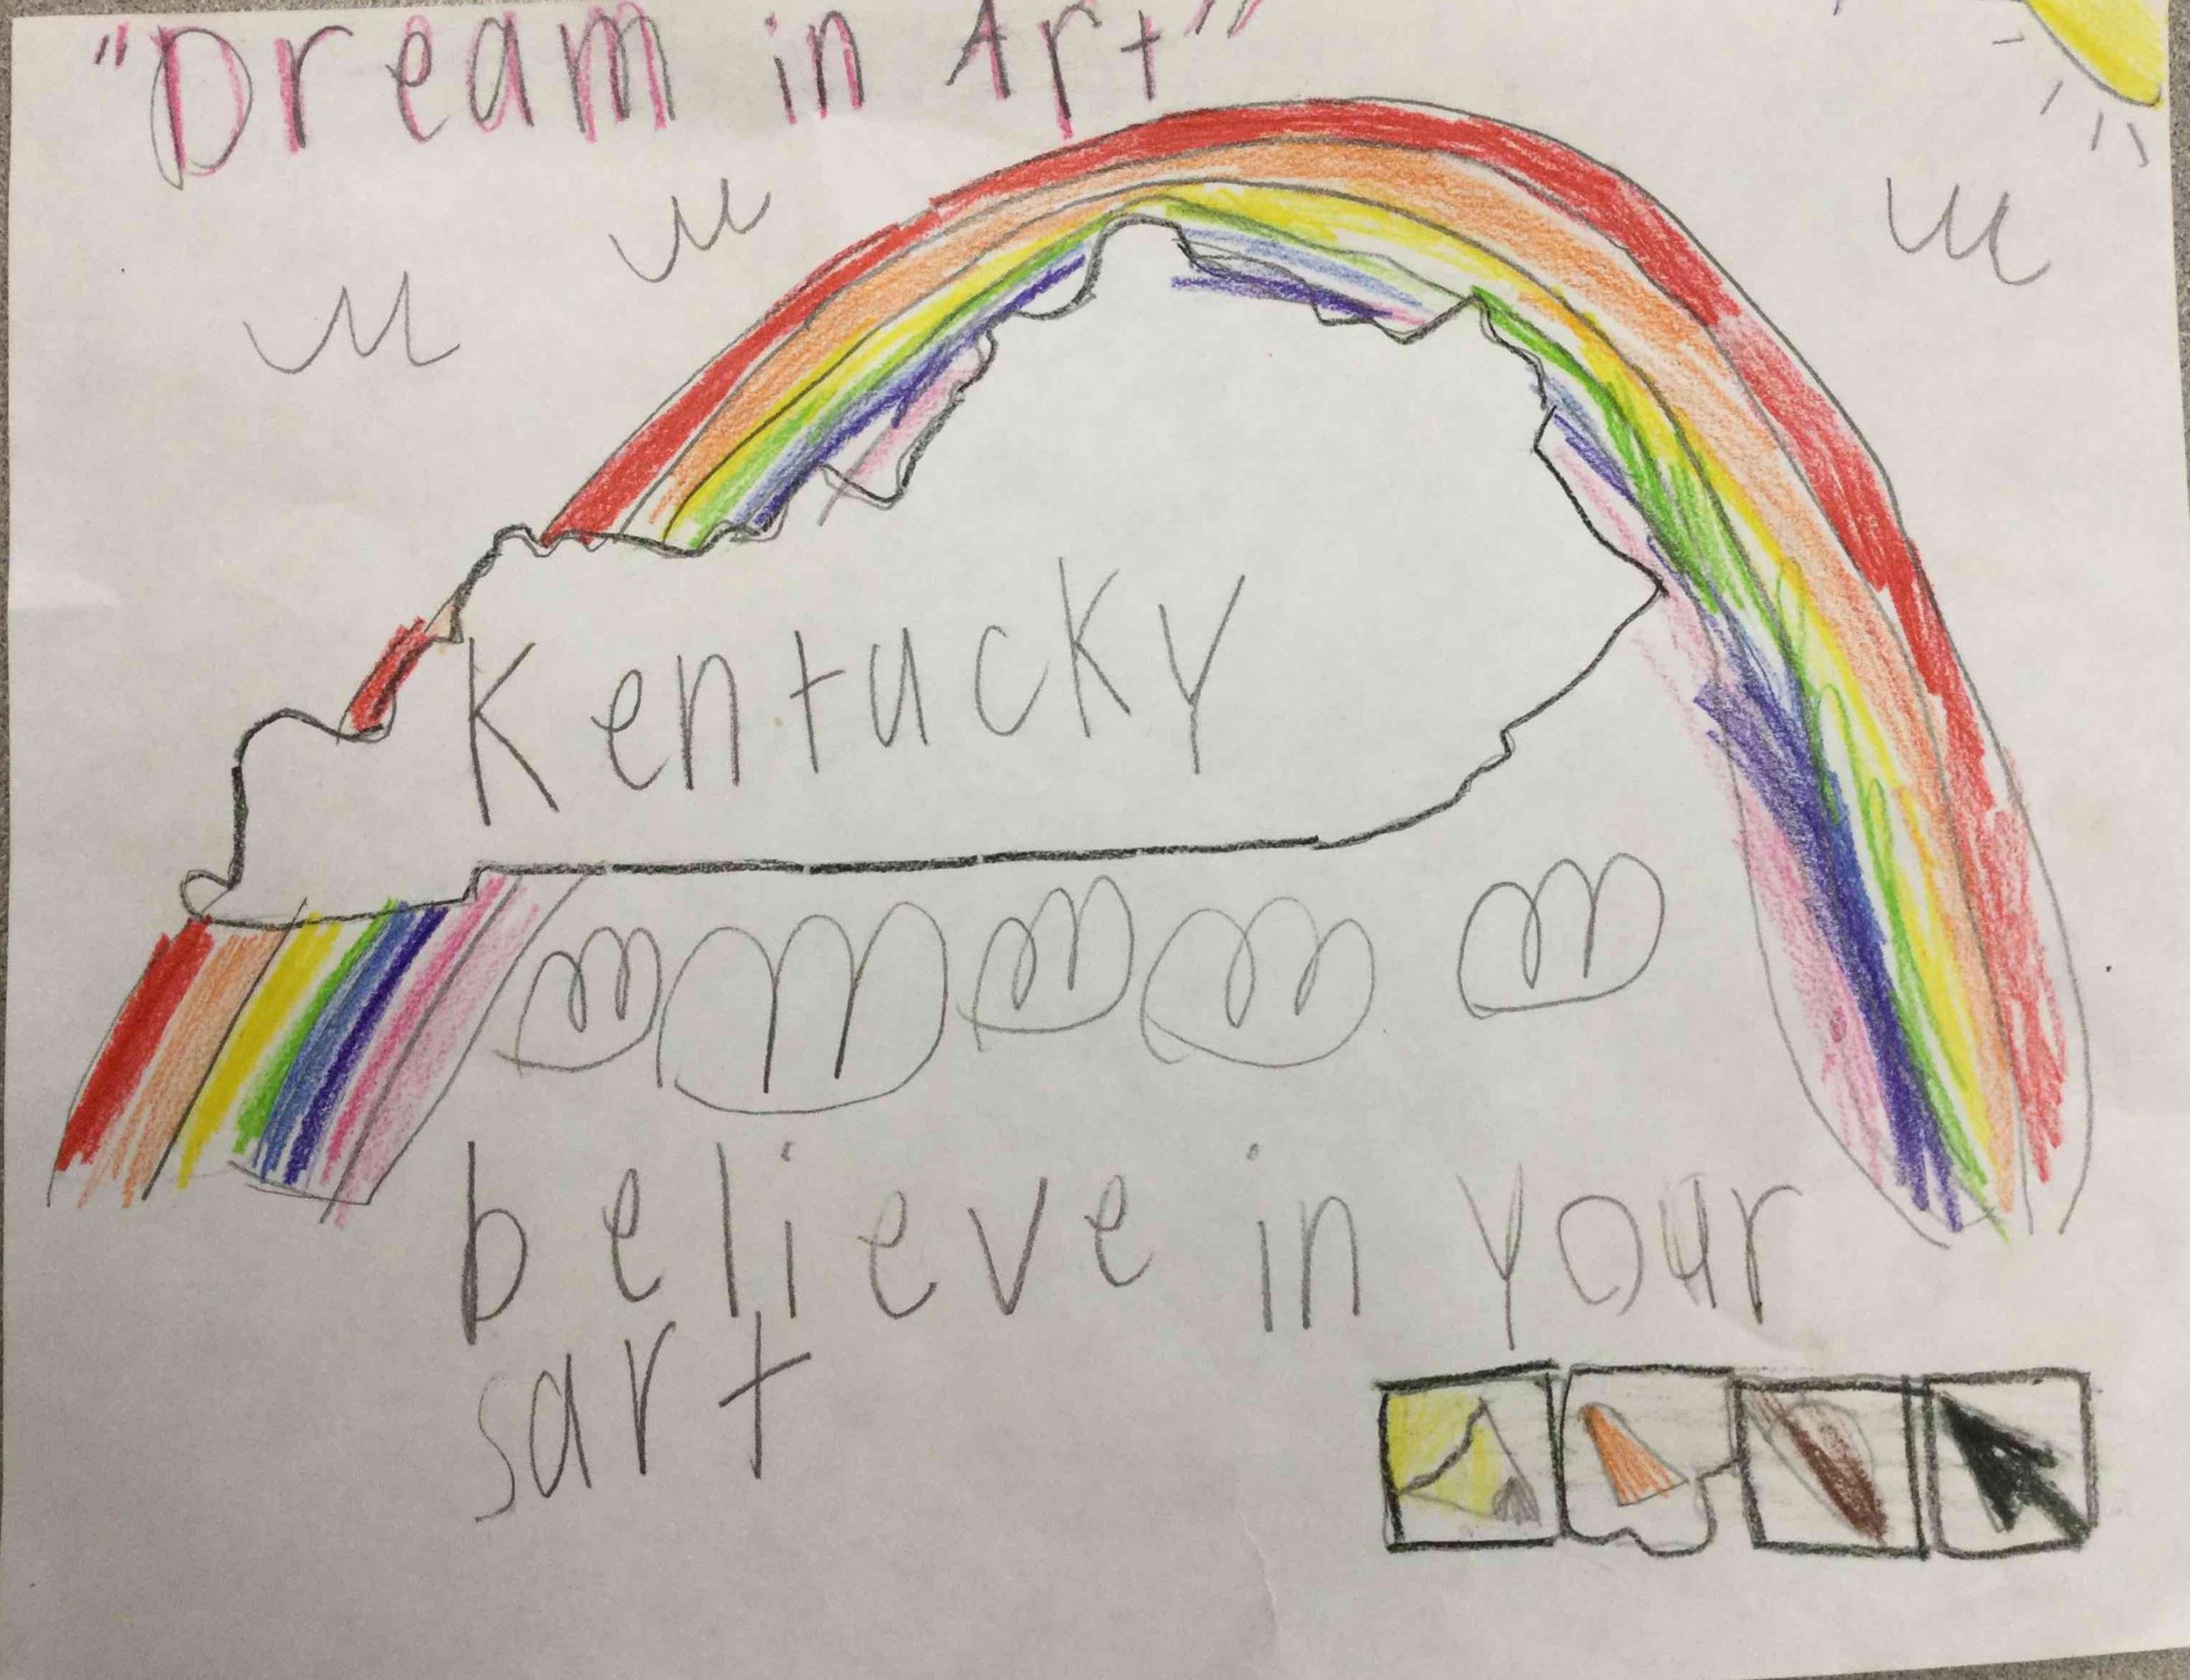 "Dream in Art"
Kentucky
believe in your
sart